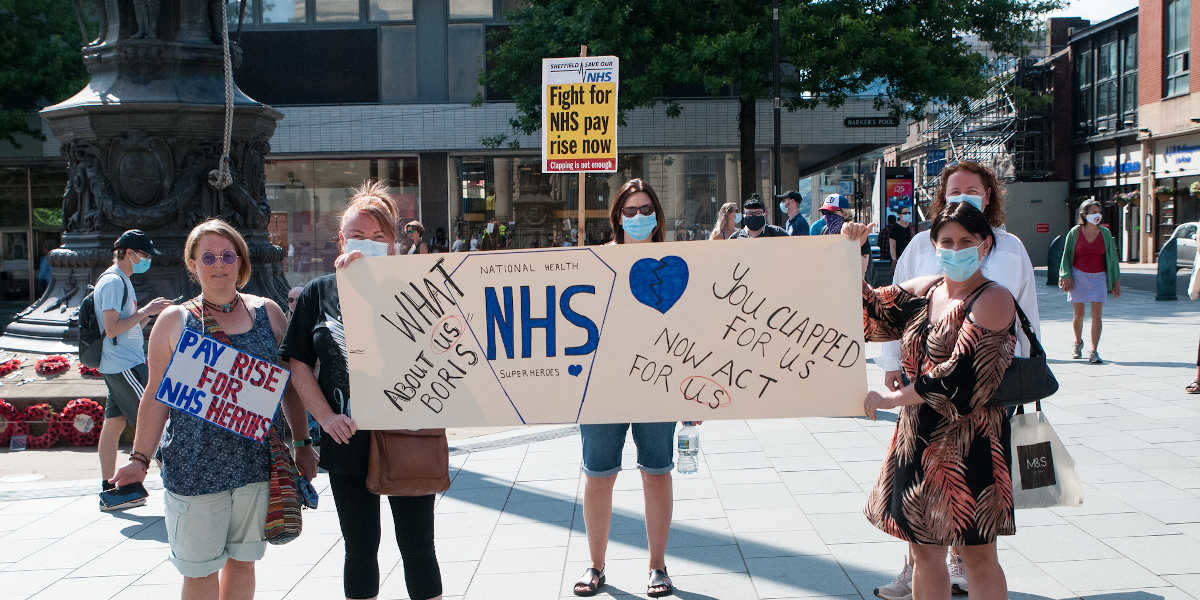 SHEFFIELD SAVE OUR
NHS
Fight for
NHS pay
rise now
Clapping is not enough
BARKER'S POOL
WHAT
ABOUT US
BORIS
NATIONAL HEALTH
NHS
SUPERHEROES
YOU CLAPPED
FOR US
NOW ACT
FOR US
PAY RISE
FOR
NHS HEROES
M&S